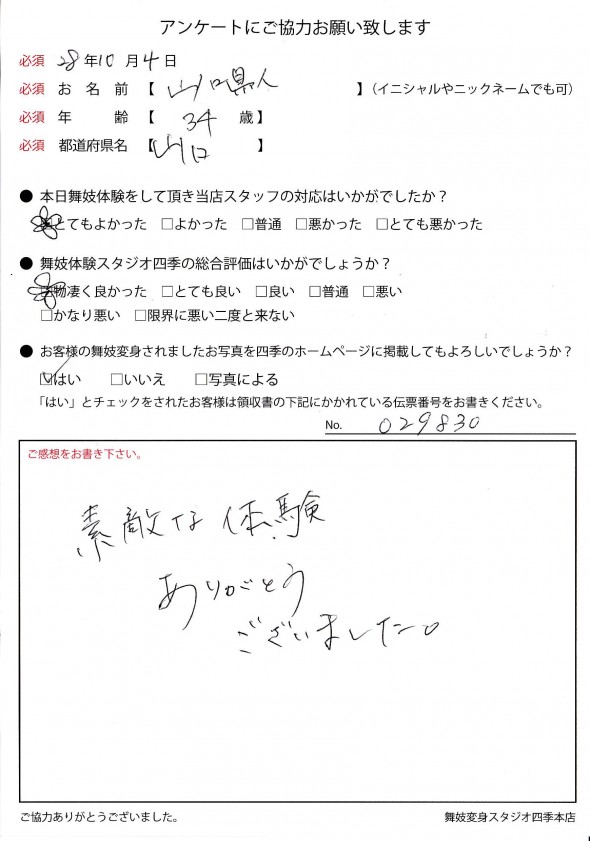 アンケートにご協力お願い致します
必須 28年10月4日
必須 お名前【 山口県人 】(イニシャルやニックネームでも可)
必須 年齢【 34 歳】
必須 都道府県名【 山口 】
● 本日舞妓体験をして頂き当店スタッフの対応はいかがでしたか?
☑とてもよかった □よかった □普通 □悪かった □とても悪かった
● 舞妓体験スタジオ四季の総合評価はいかがでしょうか?
☑物凄く良かった □とても良い □良い □普通 □悪い
□かなり悪い □限界に悪い二度と来ない
● お客様の舞妓変身されましたお写真を四季のホームページに掲載してもよろしいでしょうか?
☑はい □いいえ □写真による
「はい」とチェックをされたお客様は領収書の下記にかかれている伝票番号をお書きください。
No. 029830
ご感想をお書き下さい。
素敵な体験
ありがとう
ございました。
ご協力ありがとうございました。 舞妓変身スタジオ四季本店